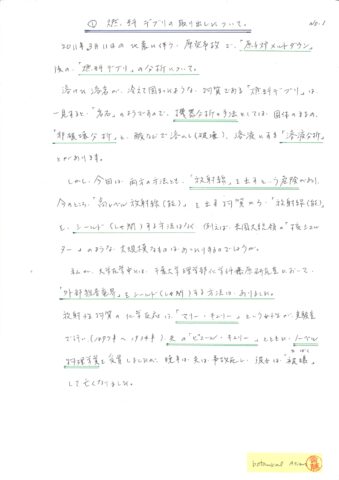 ① 燃料デブリの取り出しについて。 No.1
2011年3月11日の地震に伴う、原発事故で、「原子炉メルトダウン」
後の、「燃料デブリ」の分析について。
溶けた溶岩が、冷えて固まったような、物質である「燃料デブリ」は、
一見すると、「岩石」のようですので、機器分析の手法としては、固体のままの、
「非破壊分析」と、酸などで溶かし(破壊)、溶液にする「溶液分析」
とがあります。
しかし、今回は、両方の方法とも、「放射線」を出すという危険があり、
今のところ、「高レベル放射線(能)」を出す物質から、「放射線(能)」
を、シールド(しゃ閉)する方法はなく、例えば、米国大統領の「核シェル
ター」のような、大規模なものは、あったりするのでしょうか。
私が、大学在学中には、千葉大学理学部化学科 研究室において、
「外部 」をシールド(しゃ閉)する方法は、ありました。
放射性物質の化学反応は、「マリー・キュリー」という女性が、実験室
で行い(1897年~1914年)、夫の「ピエール・キュリー」とともに、ノーベル
物理学賞を受賞しましたが、晩年は、夫は事故死し、彼女は、「被曝」
して亡くなりました。
botanical